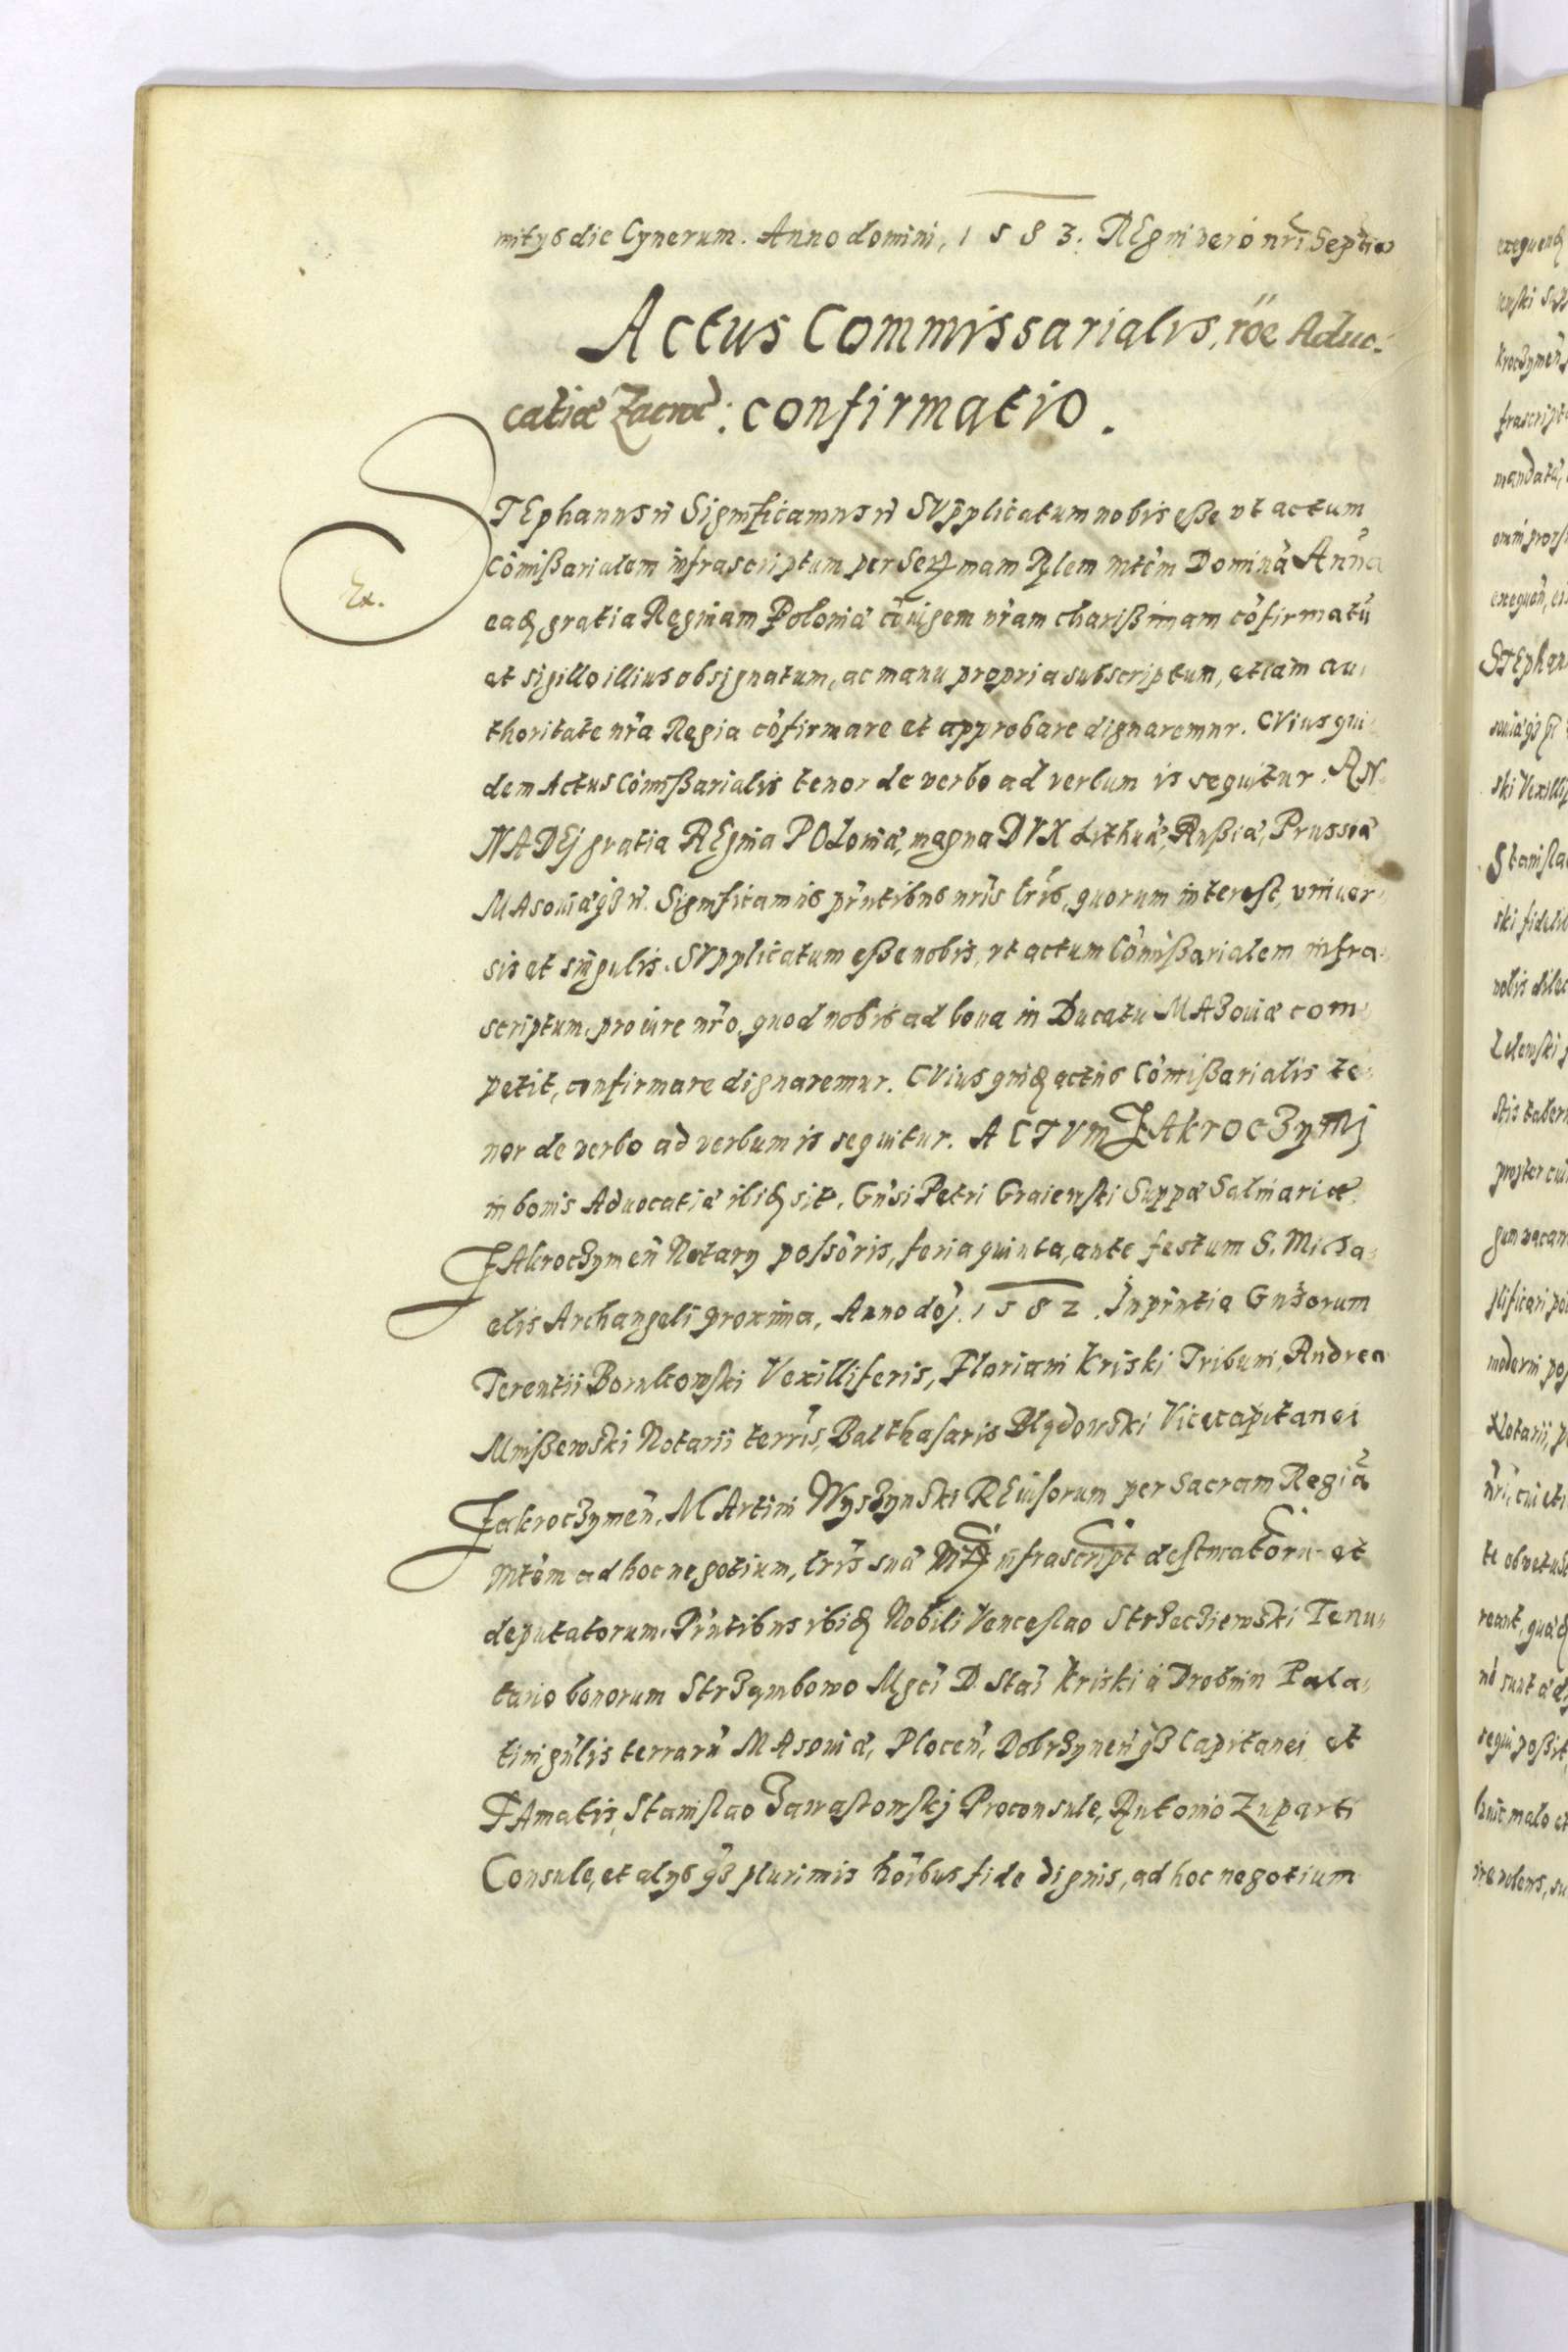 mitÿs die Cynerum. Anno domini, 1583. REgni vero nr̃i Septio
Actus Commissarialis, röe Aduo-
catiæ Zacroč: confirmatio.
Ex.
STEphannus ñ Significamus ñ SVpplicatum nobis eße vt actum
Com̃ißarialem infrascriptum per Serꝫmam Rlem mtẽm Dominã Anña
eadꝫ gratia Reginam Poloniæ cõiugem nr̃am charißimam cõfirmatũ
et sigillo illius obsignatum, ac manu propria subscriptum, etiam au-
thoritate nr̃a Regia cõfirmare et approbare dignaremur. CVius qui-
dem Actus Com̃ißarialis tenor de verbo ad verbum is sequitur. AN-
NA DEj gratia REgina POLoniæ, magna DVX Lithuæ, Rußiæ, Prussiæ
MAsouiæ qꝫ ñ. Significamus pñtibus nr̃is lr̃is, quorum interest, vniuer-
sis et singulis. SVpplicatum eße nobis, vt actum Com̃ißarialem infra-
scriptum, pro iure nr̃o, quod nobis ad bona in Ducatu MAZouiæ com-
petit, confirmare dignaremur. CVius quidꝫ actus Com̃ißarialis te-
nor de verbo ad verbum is sequitur. ACTVm ZAkroczymj
in bonis Aduocatiæ ibidꝫ sit. Gñsi Petri Graienski Suppæ Salinariæ
ZAkroczymeñ Notarÿ possõris, feria quinta, ante festum S. Micha-
elis Archangeli proxima, Anno dõj. 1582. In pñtia Gñsorum
Terentii Bornkowski Vexilliferis, Floriani Kriski Tribuni, Andreæ
Mnißewski Notarii terr̃is, Balthasaris Blędowski Vicecapitanei
Zakroczymeñ, MArtini Wyszynski REuisorum per Sacram Regiã
Mtẽm ad hoc negotium, lr̃is suã infrascript destinatorũ et
deputatorum. Pñtibus ibidꝫ Nobili Venceslao Strzecziewski Tenu-
tario bonorum Strzymbowo Mgci D. Stai Kriski à Drobnin Pala-
tini gñlis terrarũ MAsouiæ, Ploceñ, Dobrzyneñ qꝫ Capitanei et
FAmatis, Stanislao Zawastowskj Proconsule, Antonio Zuparti
Consule, et alÿs qꝫ plurimis hõibus fide dignis, ad hoc negotium